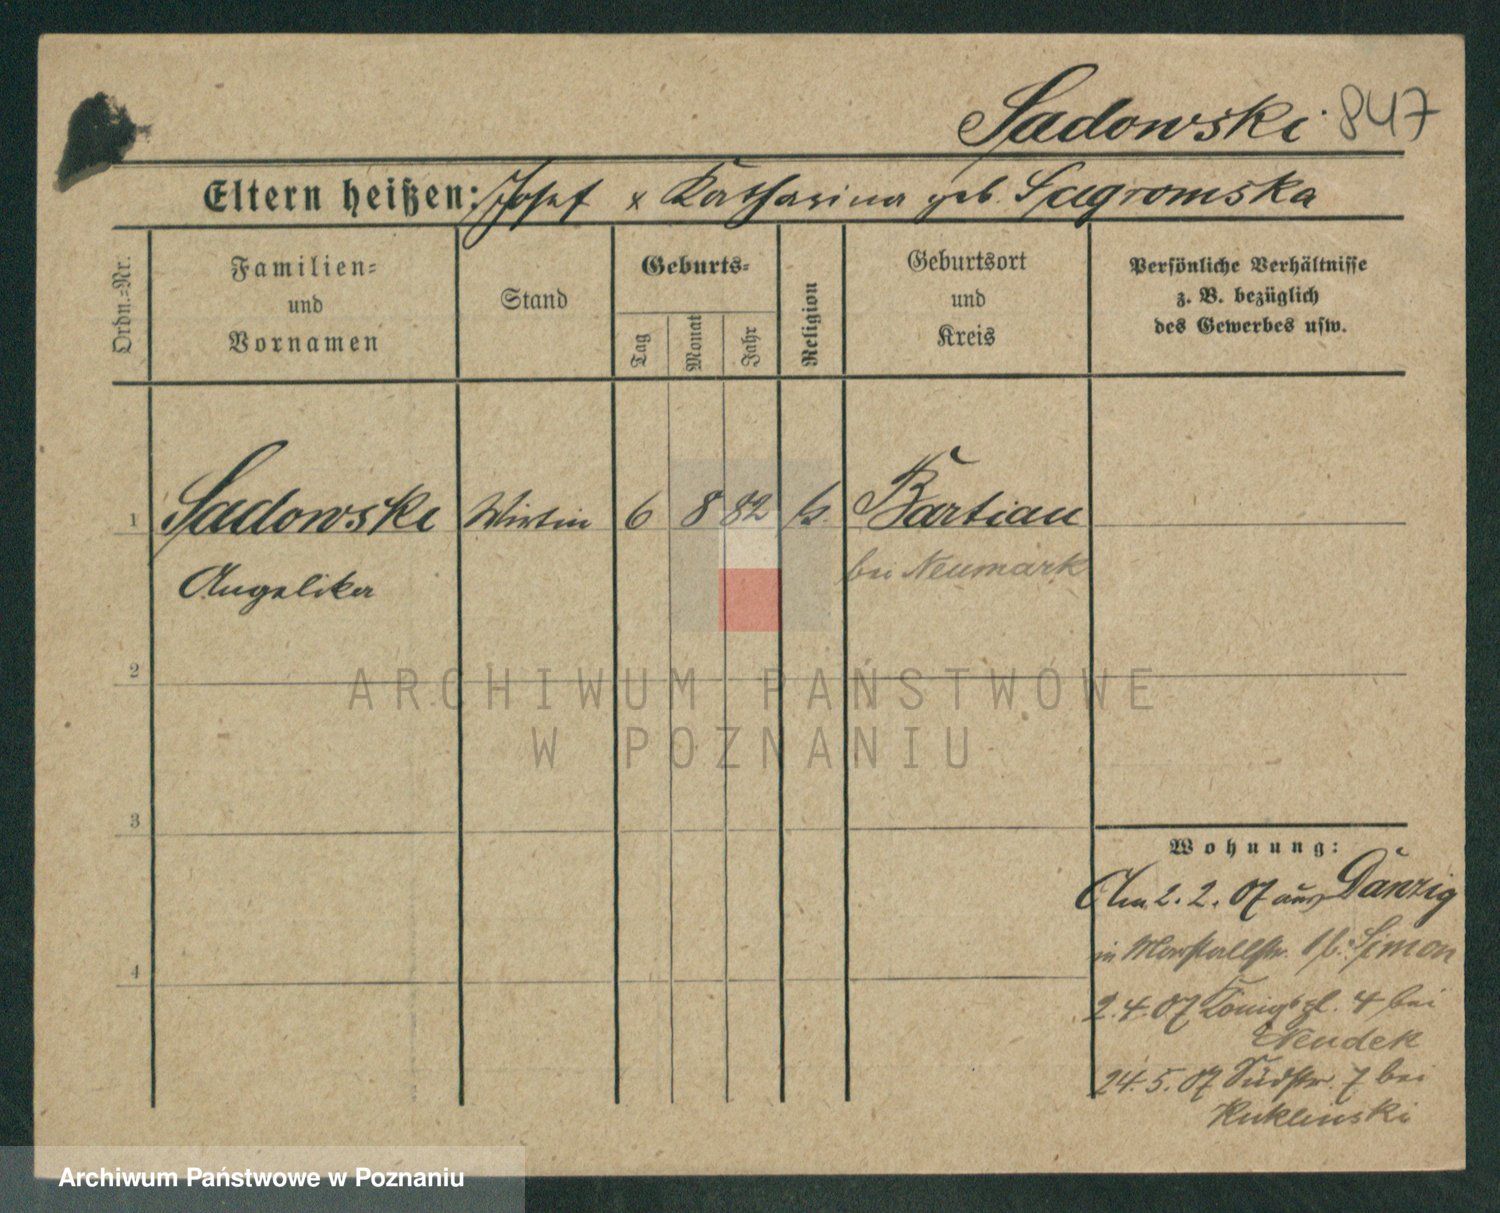 Sadowski 847
Eltern heißen: Josef u Katharina geb. Sugromska
Ordn.=Nr.
Familien=
und
Vornamen
Stand
Geburts=
Tag
Monat
Jahr
Religion
Geburtsort
und
Kreis
Persönliche Verhältnisse
z. B. bezüglich
des Gewerbes usw.
1 Sadowski Wirtin 6 8 82 k. Bartian
Angelika bei Neumark
2
3
4
Wohnung:
Am 2. 2. 07 aus Danzig
in Marstallstr. b. Simon
2.4.07 Königspl. 4 bei
Neudek
24.5.07 Südstr. 7 bei
Kuklinski
ARCHIWUM PAŃSTWOWE
W POZNANIU
Archiwum Państwowe w Poznaniu